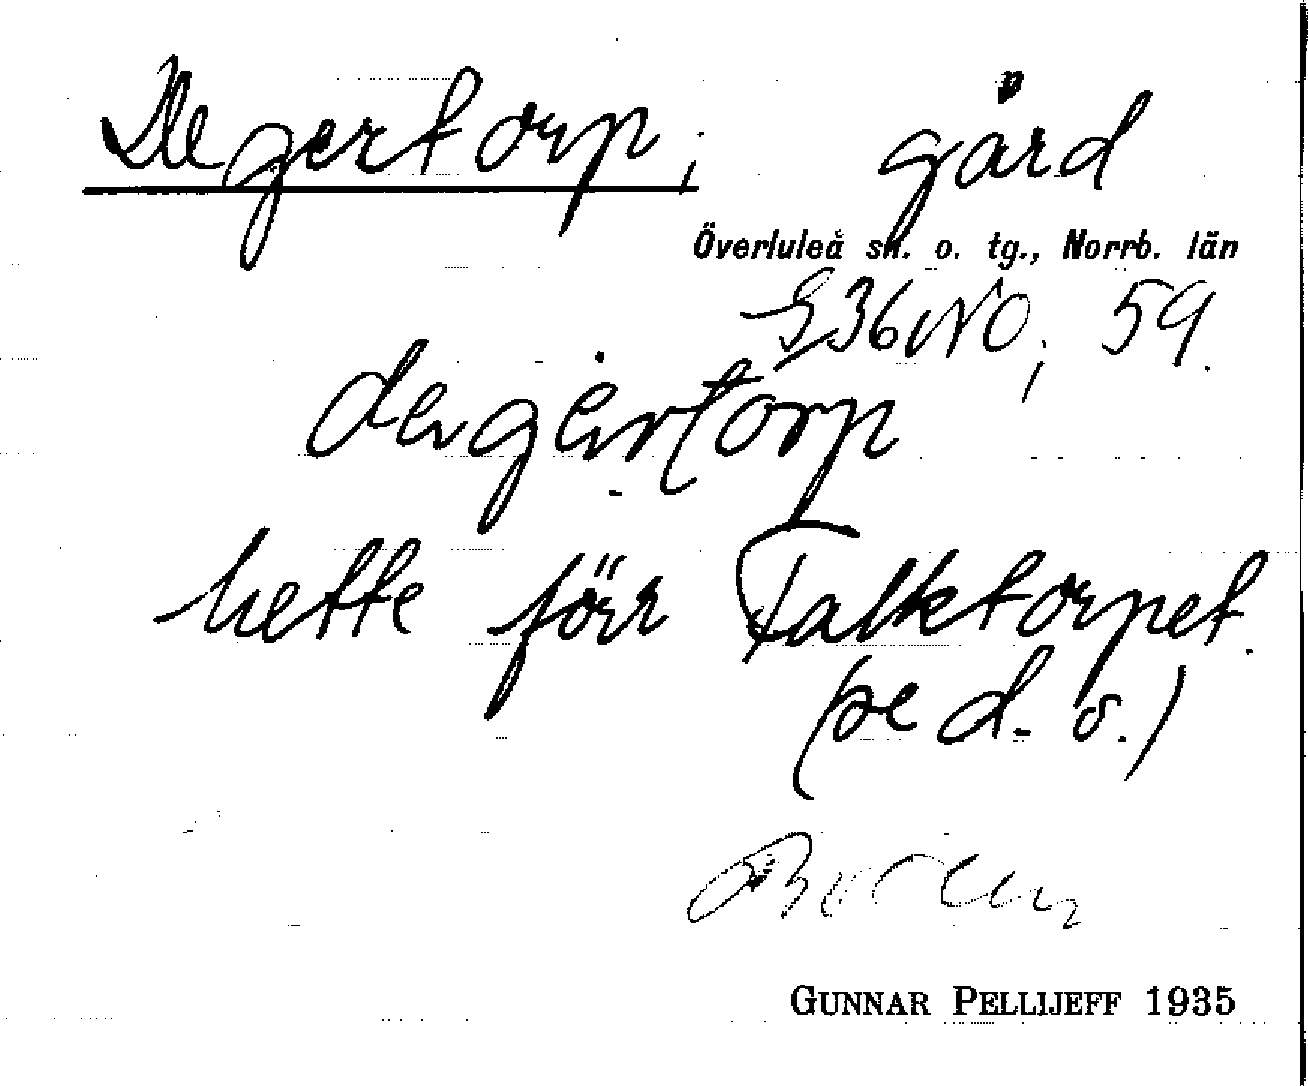 Degertorp, gård
Överluleå sn. o. tg., Norrb. län
S36NO, 59.
degertorp
hette förr Falktorpet.
(se d. o.)
GUNNAR PELLIJEFF 1935